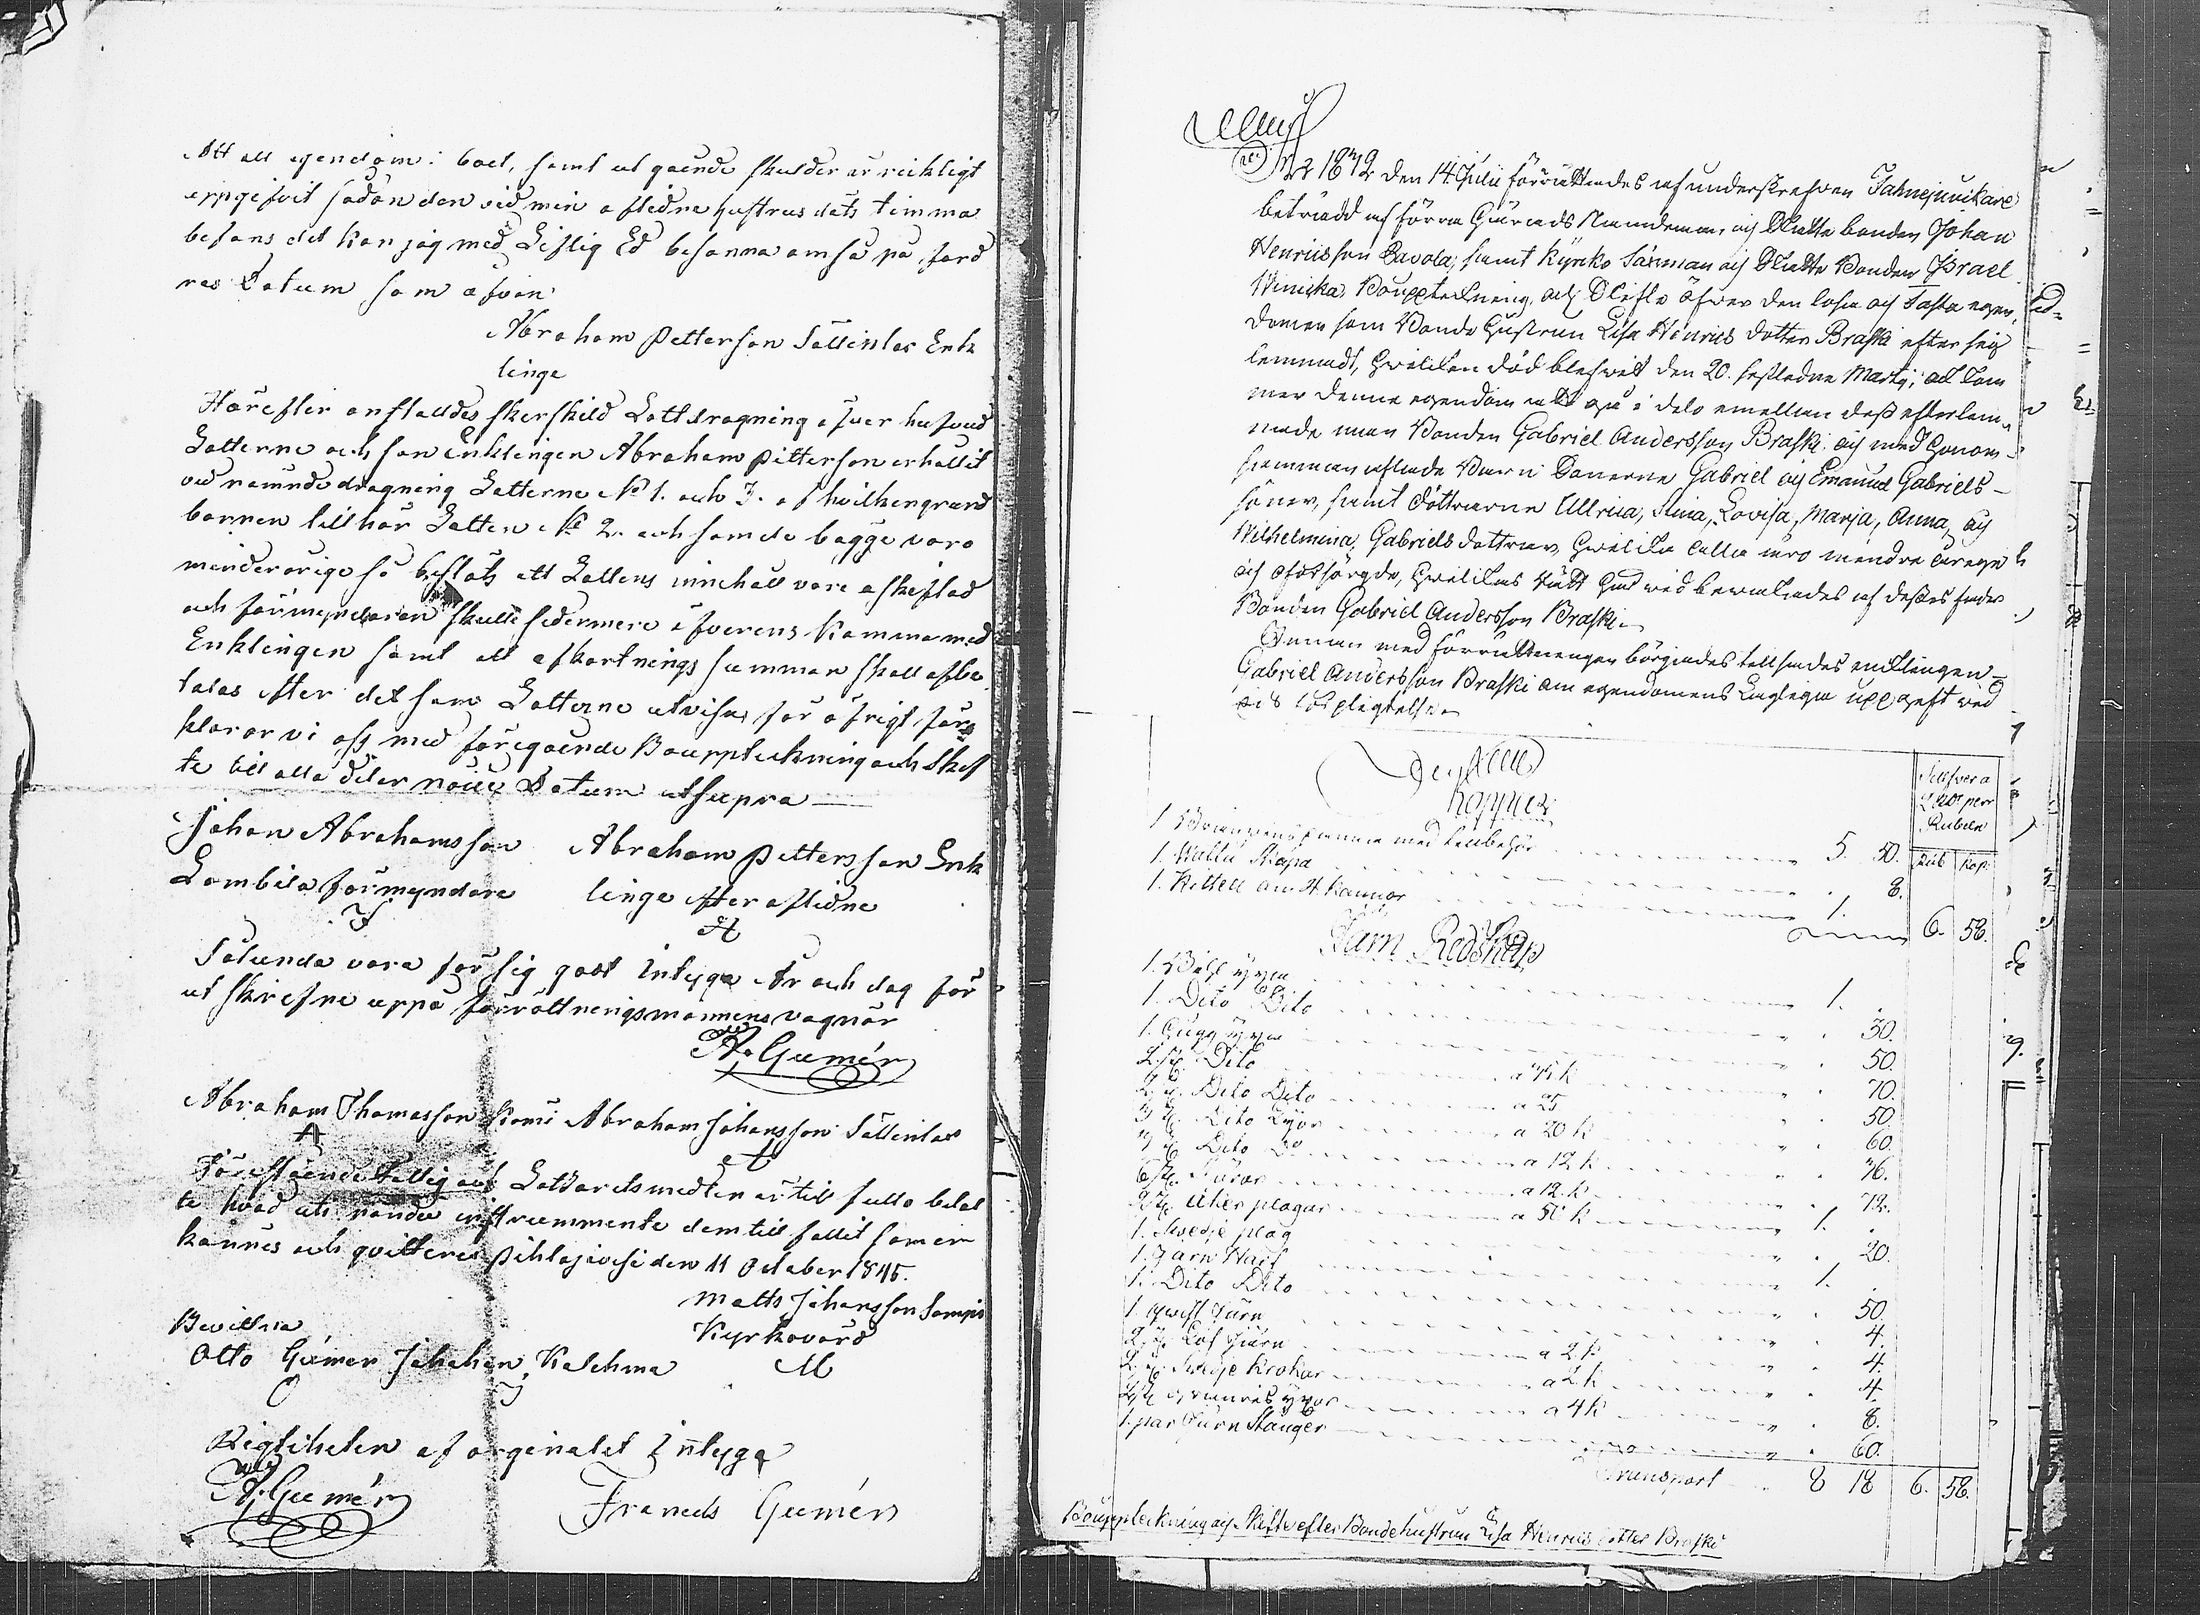 Att all egendom i boet, samt ut gående skulder är ricktigt
uppgifvit sådan den vid min aflidne hustrus döts timma
befans det kan jag med Liflig Ed besanna om så på ford
ras Datum som ofvan
Abraham Petterson Sällinlax Enk
linge
Härefter anstalldes sker skild Lottdragning öfver hufvud
Lotterne och har Enklingen Abraham Petterson erhallit
vid nämnde dragning Lotterne No 1. och 3. af hvilken grund
barnen tillhör Lotten No 2. och som de bägge voro
minderårige så beslöts att Lottens innehall vore oskiftad
och förmyndaren skulle sedermera öfverens komma med
Enklingen samt att afkortnings summan skall afbe
talas efter det som Lotterne utvisa, för öfrigt för
klarar vi oss med föregående Bouppteckning och Skif
te till alla delar nöijde Datum utsupra
Johan Abrahamsson Abraham Pettersson Enk
Lombila förmyndare linge efter aflidne
Sålunda vara för sig gått intyga År och dag för
ut skrefne uppå förrättningsmannens vagnar
A. Gumér
Abraham Thomasson Abraham Johansson Sällinlax
A
Förestående Fattig och Lottaretsmedlen är till fullo betal
te hvad uti nämde instrummente dem till fallit som er
kännes och qvitteres Pihlajavesi den 11 October 1845.
Matts Johansson Sompis
Kyrkovärd
M
Bevittna
Otto Gumer Johahan Kalehma
Rigtiheten af orginalet Intyga
A. Gumér Franeds Gumér
År 1842 den 14 Julii förrättades af underskrefven Fahnejunkare
beträdd af förra Härads Nämdeman, och Skatte bonden Johan
Henriksson Pavola, samt Kyrko Sexman och Skatte Bonden Israel
Winicka Bouppteckning, och Skifte öfver den lösa och Fasta egen,
domen som Bonde Hustrun Lisa Henriks dotter Braski efter sig
lemnadt, hvilken död blefvit den 20. sistledne Martij; och kom
mer denna egendom att gå i dels emellan dess efterlem
nade man Bonden Gabriel Andersson Braski och med honom
samman aflade Barn Sönerne Gabriel och Emanuel Gabriels-
söner, samt döttrarne Ullrica, Stina, Lovisa, Marja, Anna, och
Wilhelmina, Gabriels döttrar, hvilka alla äro mindre årige
och oförsörgde, hvilkas rätt här vid bevakades af desses fader
Bonden Gabriel Andersson Braski.
Innan med förrättningen börjades tillsades enklingen
Gabriel Andersson Braski om egendomens riktiga uppgift vid
eds förpligtelse.
Silfver a
Rubeln
Rub Kop.
Koppar
1 Brännvins panna med tillbehör 5. 50.
1. Malm Skopa 8.
1. Kittell om 4 kannor 1. 6. 58.
Järn Redskap
1. Bihl yxa 1.
1. Dito Dito 30.
1. Hugg yxa 50.
2 st. Dito a 35 k 70.
2 st. Dito Dito a 25 50.
3 st. Dito a 20 k 60.
3 st. Dito Do a 12 k 36.
6 st. Skäror a 12 k 72.
2 st. Åker plogar a 50 k 1.
1. Swedje plog 20.
1. Jarn Harf 1.
1. Dito Dito 50.
1. Qwist Järn 4.
2 st. Löf Järn a 2 k 4.
2 st. Swedje Krokar a 2 k 4.
2 st. a 4 k 8.
1. par Järn Stänger 60.
Transport 8 18 6. 58.
Bouppteckning och Skifte efter Bondehustrun Lisa Henriks dotter Braski